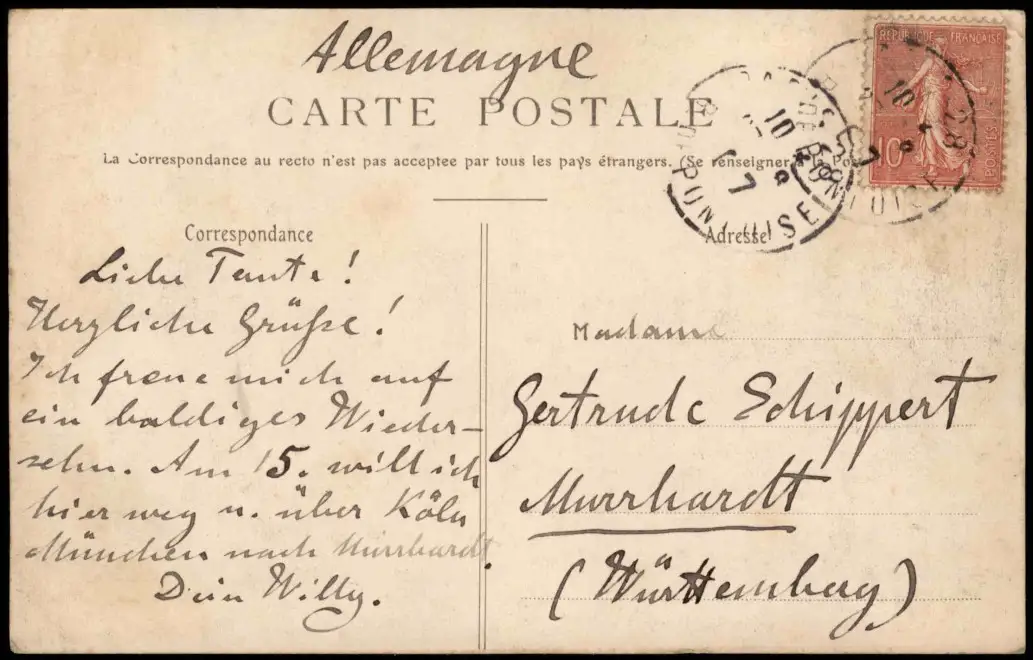 Allemagne
CARTE POSTALE
La Correspondance au recto n'est pas acceptee par tous les pays étrangers. (Se renseigner à la Pos
REPUBLIQUE FRANÇAISE
10
POSTES
Correspondance
Adresse
Liebe Tante!
Herzliche Grüße!
Ich freue mich auf
ein baldiges Wieder-
sehn. Am 15. will ich
hier weg u. über Köln
München nach Murrhardt.
Dein Willy.
Madame
Gertrude Schippert
Murrhardt
(Württemberg)